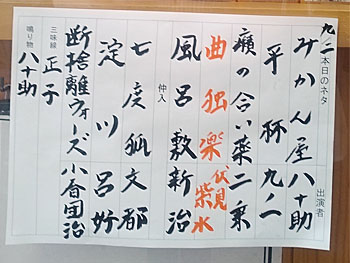 九/二 本日のネタ 出演者
みかん屋 八十助
平杯 九ノ一
癪の合い薬 二乗
曲独楽 伏見紫水
風呂敷 新治
仲入
七度狐 文都
淀川 呂好
断捨離ウォーズ 小春團治
三味線 正子
鳴り物 八十助